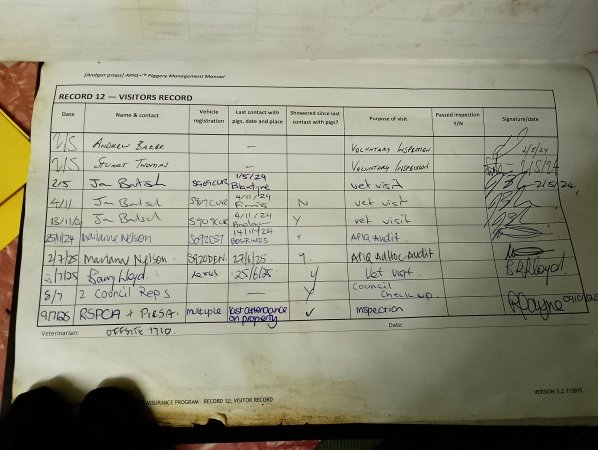 [Andgar props] APIQ✓® Piggery Management Manual
RECORD 12 — VISITORS RECORD
Date Name & contact Vehicle registration Last contact with pigs, date and place Showered since last contact with pigs? Purpose of visit Passed inspection Y/N Signature/date
2/5 ANDREW BAKER – VOLUNTARY INSPECTION 2/5/24
2/5 STUART THOMAS – VOLUNTARY INSPECTION 2/5/24
2/5 1/5/24 Vet visit 2/5/24
4/11 4/11/24 N vet visit
13/11/24 4/11/24 Y vet visit
Marianne Nelson Y APIQ Audit
2/7/25 Mariann Nelson 27/6/25 Y. APIQ AdHoc Audit
/7/25 Barry Lloyd Lexus 25/6/25 y Vet visit B Lloyd
8/7 2 Council Reps Y Council Check up
9/7/25 RSPCA + PIRSA. multiple last attendance on property ✓ Inspection
Veterinarian: OFFSITE 1710. Date:
ASSURANCE PROGRAM - RECORD 12; VISITOR RECORD
VERSION 3.2 7/2015